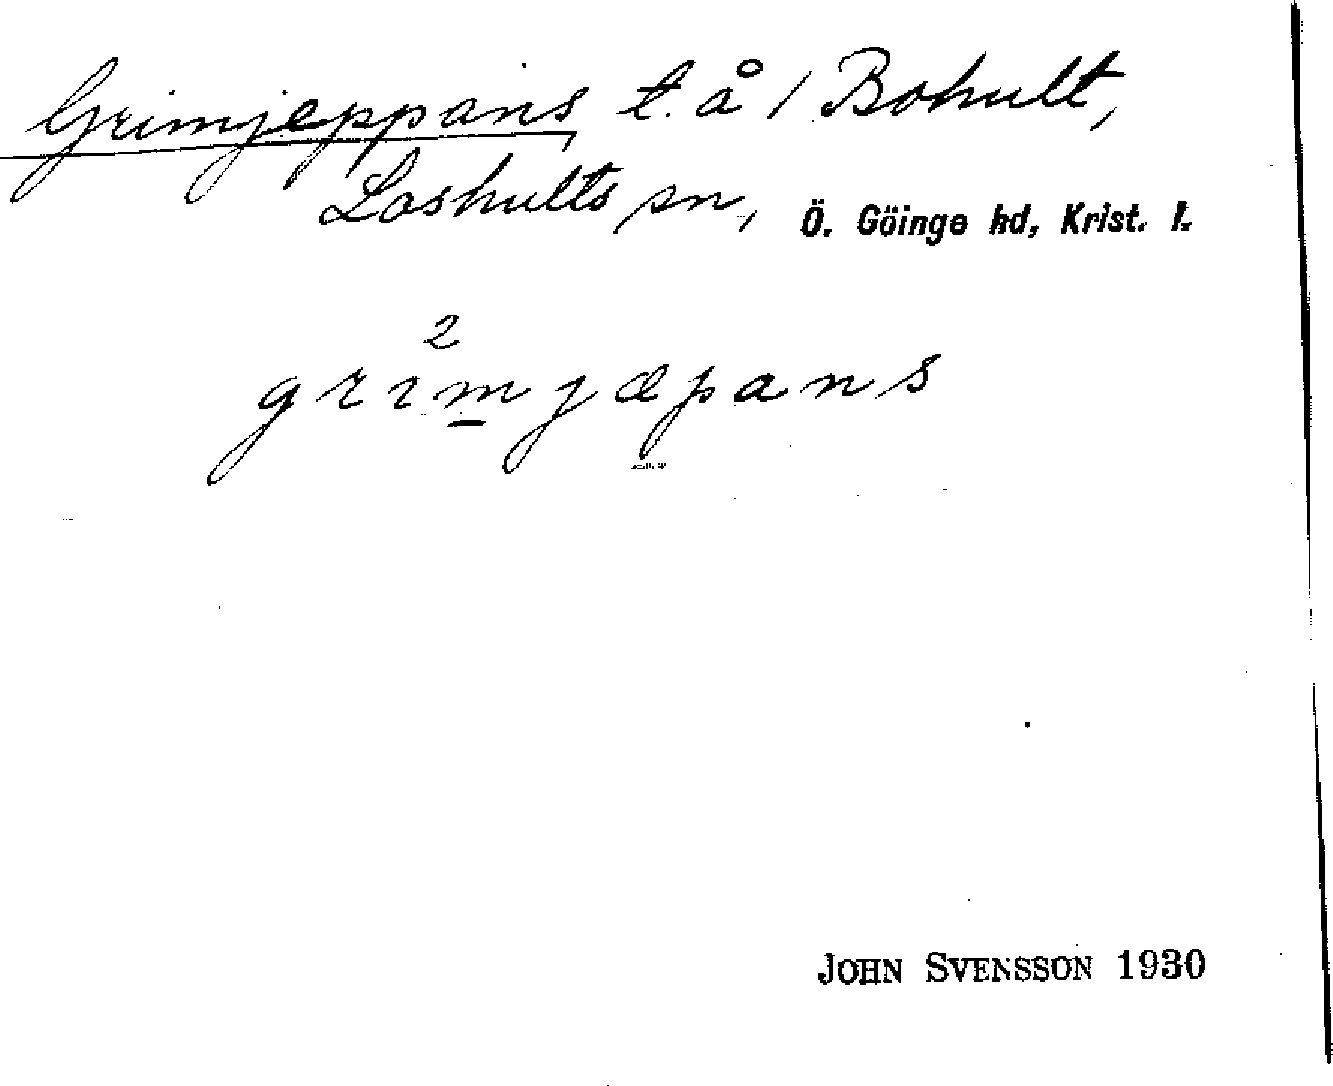 Grimjeppans, t. å / Bohult,
Loshults sn, Ö. Göinge hd, Krist. l.
2
grımjæpans
JOHN SVENSSON 1930